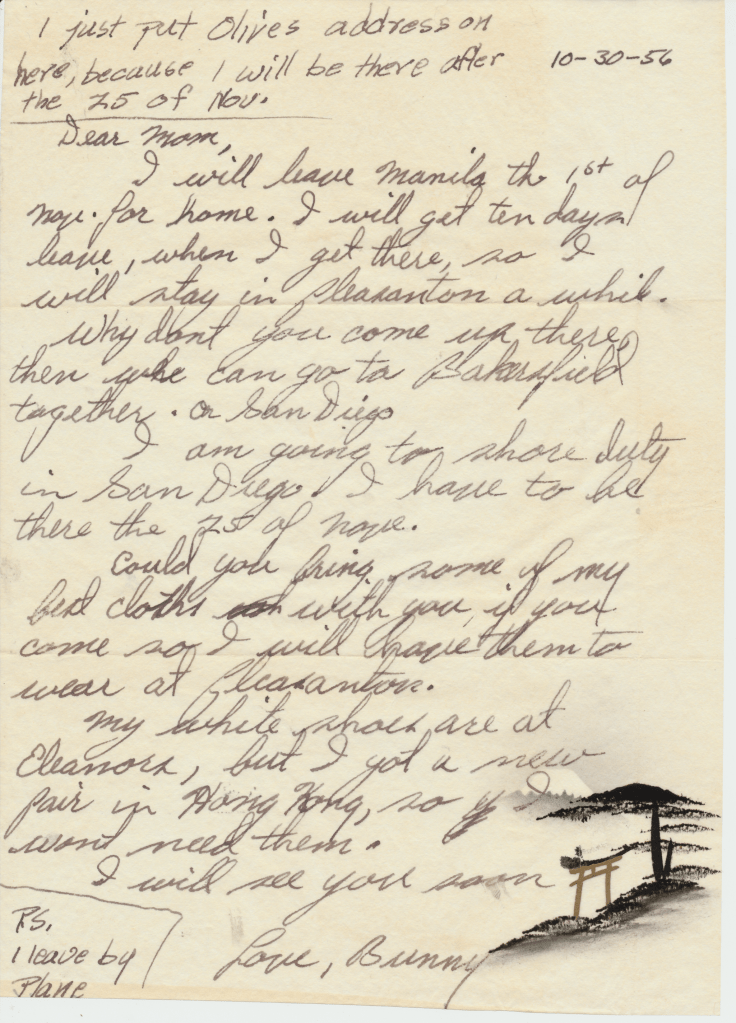 I just put Olives address on
here, because I will be there after
the 25 of Nov.
10-30-56
Dear Mom,
I will leave Manila the 1st of
Nove. for home. I will get ten days
leave, when I get there, so I
will stay in Pleasanton a while.
Why dont you come up there,
then we can go to Bakersfield
together. or San Diego
I am going to shore duty
in San Diego. I have to be
there the 25 of Nove.
Could you bring some of my
best cloths with you, if you
come so I will have them to
wear at Pleasanton.
My white shoes are at
Eleanors, but I got a new
pair in Hong Kong, so I
wont need them.
I will see you soon
Love, Bunny
P.S.
I leave by
Plane